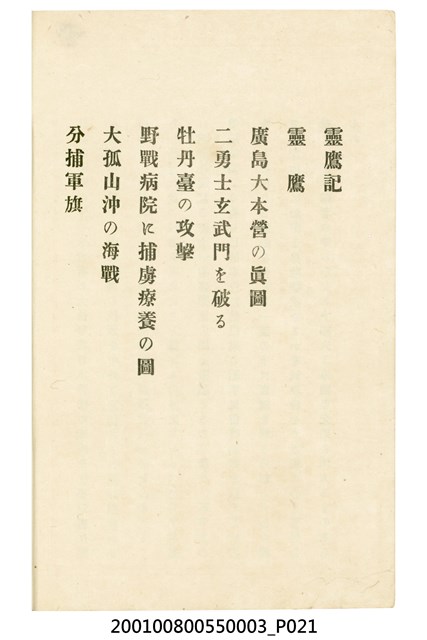 靈鷹記
靈　鷹
廣島大本營の眞圖
二勇士玄武門を破る
牡丹臺の攻擊
野戰病院に捕虜療養の圖
大孤山沖の海戰
分捕軍旗
200100800550003_P021